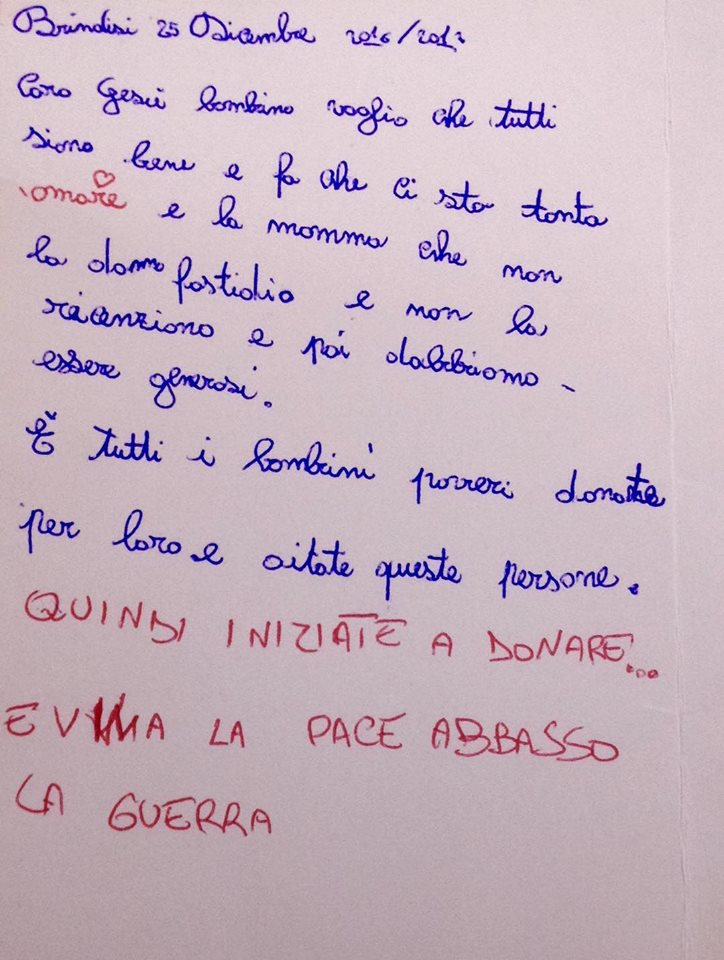 Brindisi 25 Dicembre 2016/2017
Caro Gesù bambino voglio che tutti
siano bene e fa che ci sta tanta
amore e la mamma che non
la danno fastidio e non la
e poi dabbiamo -
essere generosi.
E tutti i bambini poveri donate
per loro e aitate queste persone.
QUINDI INIZIATE A DONARE...
E VIVA LA PACE ABBASSO
LA GUERRA